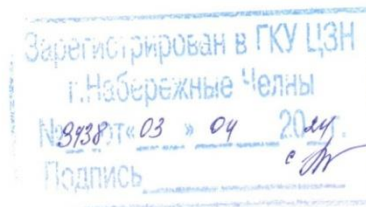 Зарегистрирован в ГКУ ЦЗН
г.Набережные Челны
№ 9438 от « 03 » 04 2024 г.
Подпись